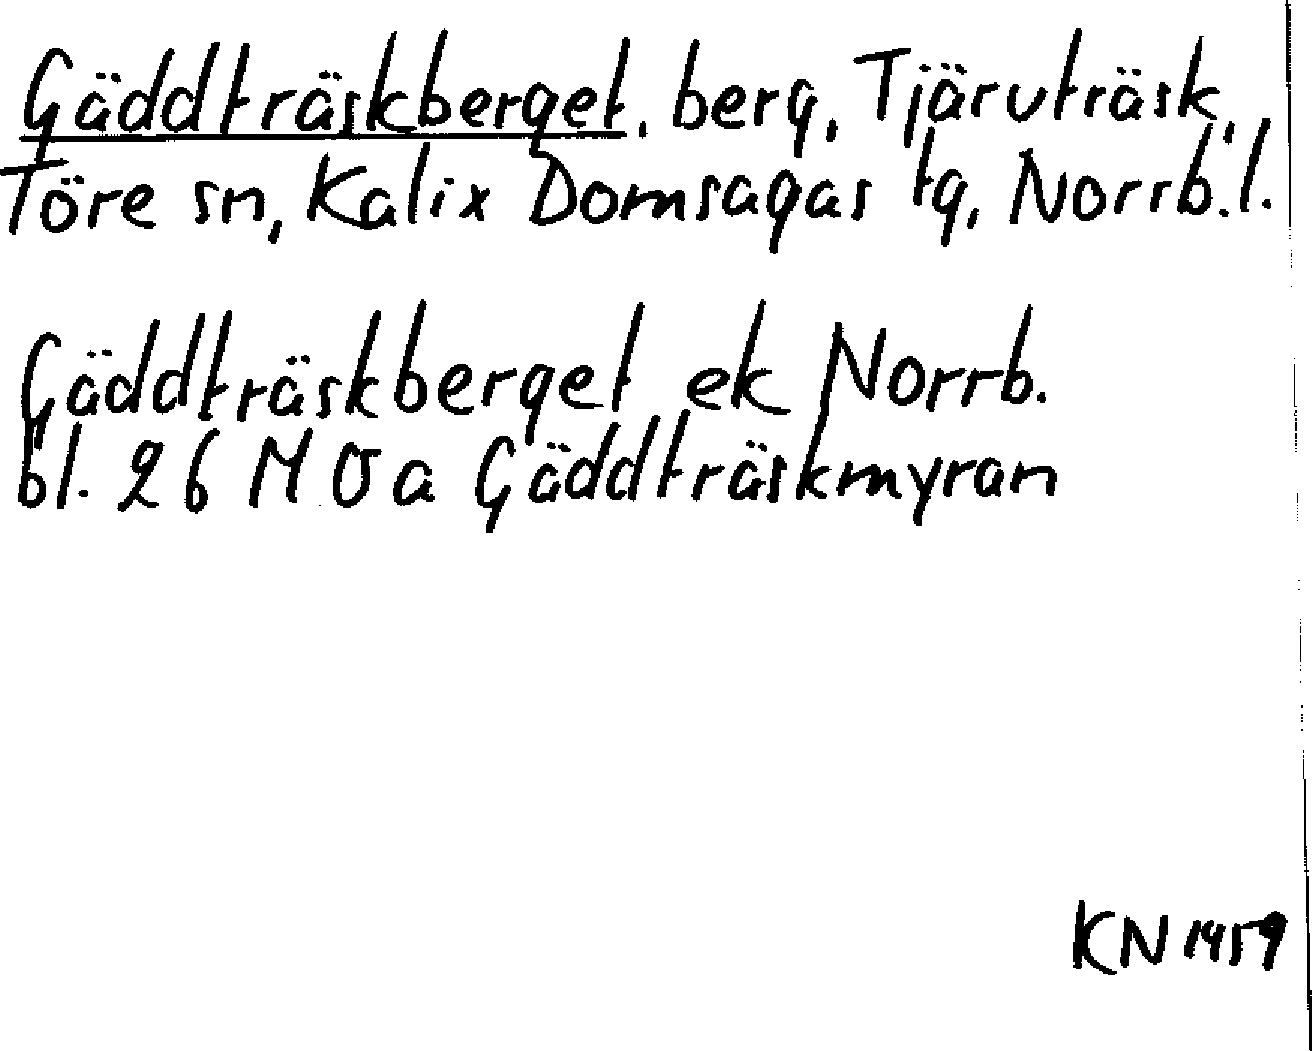 Gäddträskberget, berg, Tjäruträsk,
Töre sn, Kalix Domsagas tg, Norrb. l.
Gäddträskberget ek Norrb.
bl. 26 NO a Gäddträskmyran
KN 1959